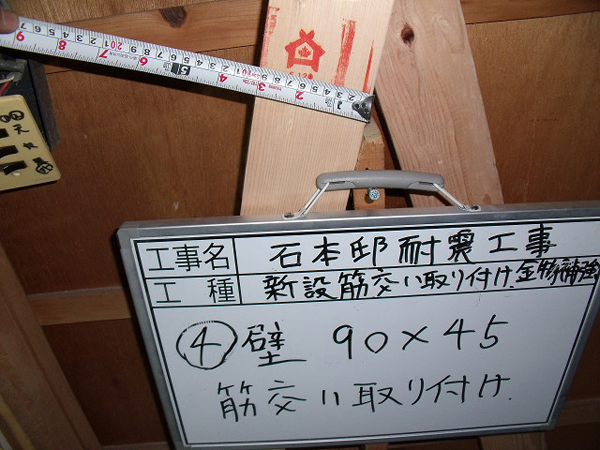 工事名 石本邸耐震工事
工種 新設筋交い取り付け.金物補強
④壁 90×45
筋交い取り付け.